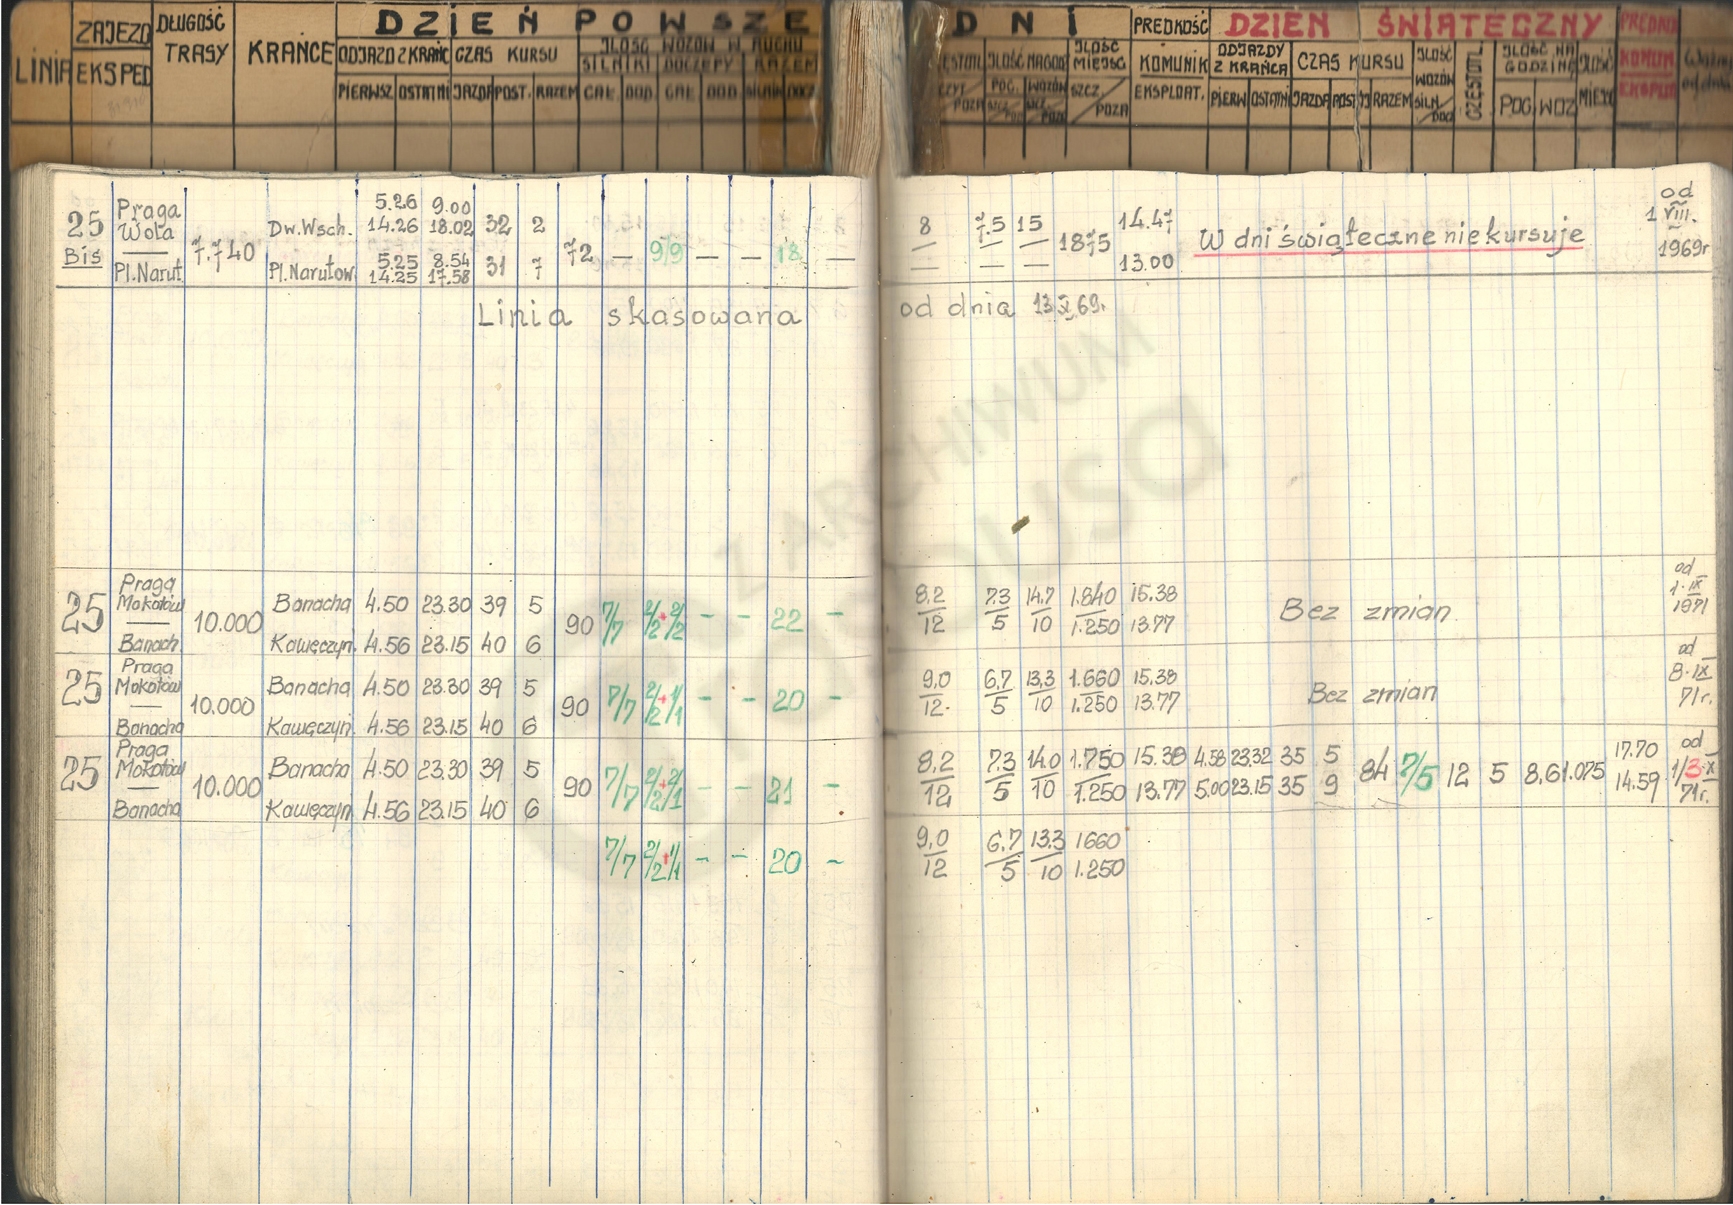 DZIEŃ POWSZE
DNI
DZIEŃ ŚWIĄTECZNY
LINIA
ZAJEZD
EKSPED
DŁUGOŚĆ
TRASY
KRAŃCE
ODJAZD Z KRAŃC
CZAS KURSU
ILOŚĆ WOZÓW W RUCHU
SILNIKI DOCZEPY RAZEM
PIERWSZ. OSTATNI JAZDA POST. RAZEM CAŁ. DOD. CAŁ. DOD.
ILOŚĆ NA GOD.
POC. WOZÓW
ILOŚĆ
MIEJSC
SZCZ. POZA
PRĘDKOŚĆ
KOMUNIK
EKSPLOAT.
ODJAZDY
Z KRAŃCA
CZAS KURSU
PIERW OSTATNI JAZDA POST RAZEM
ILOŚĆ
WOZÓW
SILN.
ILOŚĆ NA
GODZINĘ
POC. WOZ
KOMUN.
25 Bis
Praga
Wola
Pl. Narut.
7.740
Dw. Wsch. 5.26 9.00 14.26 18.02 32 2
Pl. Narutow. 5.25 8.54 14.25 17.58 31 7
72 — 9/9 — — 18 —
8 7.5 15 1875 14.47 13.00 W dni świąteczne nie kursuje od 1 VIII. 1969r
Linia skasowana od dnia 13 X 69r.
25
Praga
Mokotów
Banach.
10.000
Banacha 4.50 23.30 39 5
Kawęczyn. 4.56 23.15 40 6
90 7/7 2/2+2/2 - - 22 -
8,2 7,3 14,7 1.840 15.38 Bez zmian od 1.IX 1971
12 5 10 1.250 13.77
25
Praga
Mokotów
Banacha
10.000
Banacha 4.50 23.30 39 5
Kawęczyn 4.56 23.15 40 6
90 7/7 2/2+1/1 - - 20 -
9,0 6,7 13,3 1.660 15.38 Bez zmian od 8.IX 71r.
12. 5 10 1.250 13.77
25
Praga
Mokotów
Banacha
10.000
Banacha 4.50 23.30 39 5
Kawęczyn. 4.56 23.15 40 6
90 7/7 2/2+2/1 - - 21 -
8,2 7,3 14,0 1.750 15.38 4.58 23.32 35 5 84 7/5 12 5 8,6 1.075 17.70 od 1/3.X 71r.
12 5 10 1.250 13.77 5.00 23.15 35 9 14.59
7/7 2/2+1/1 - - 20 -
9,0 6,7 13,3 1660
12 5 10 1.250
Z ARCHIWUM